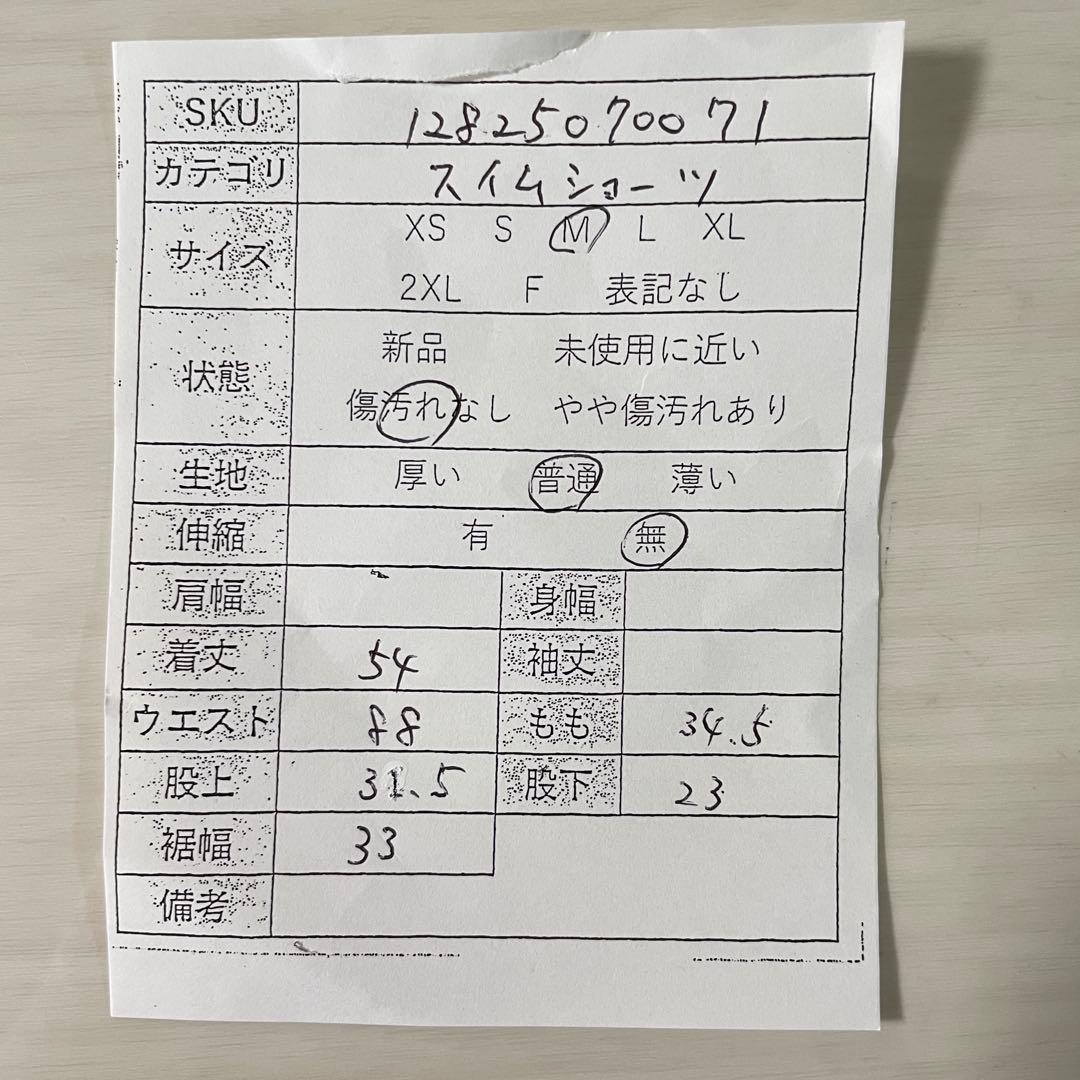 SKU 12825070071
カテゴリ スイムショーツ
サイズ XS S M L XL
2XL F 表記なし
状態 新品 未使用に近い
傷汚れなし やや傷汚れあり
生地 厚い 普通 薄い
伸縮 有 無
肩幅 身幅
着丈 54 袖丈
ウエスト 88 もも 34.5
股上 31.5 股下 23
裾幅 33
備考